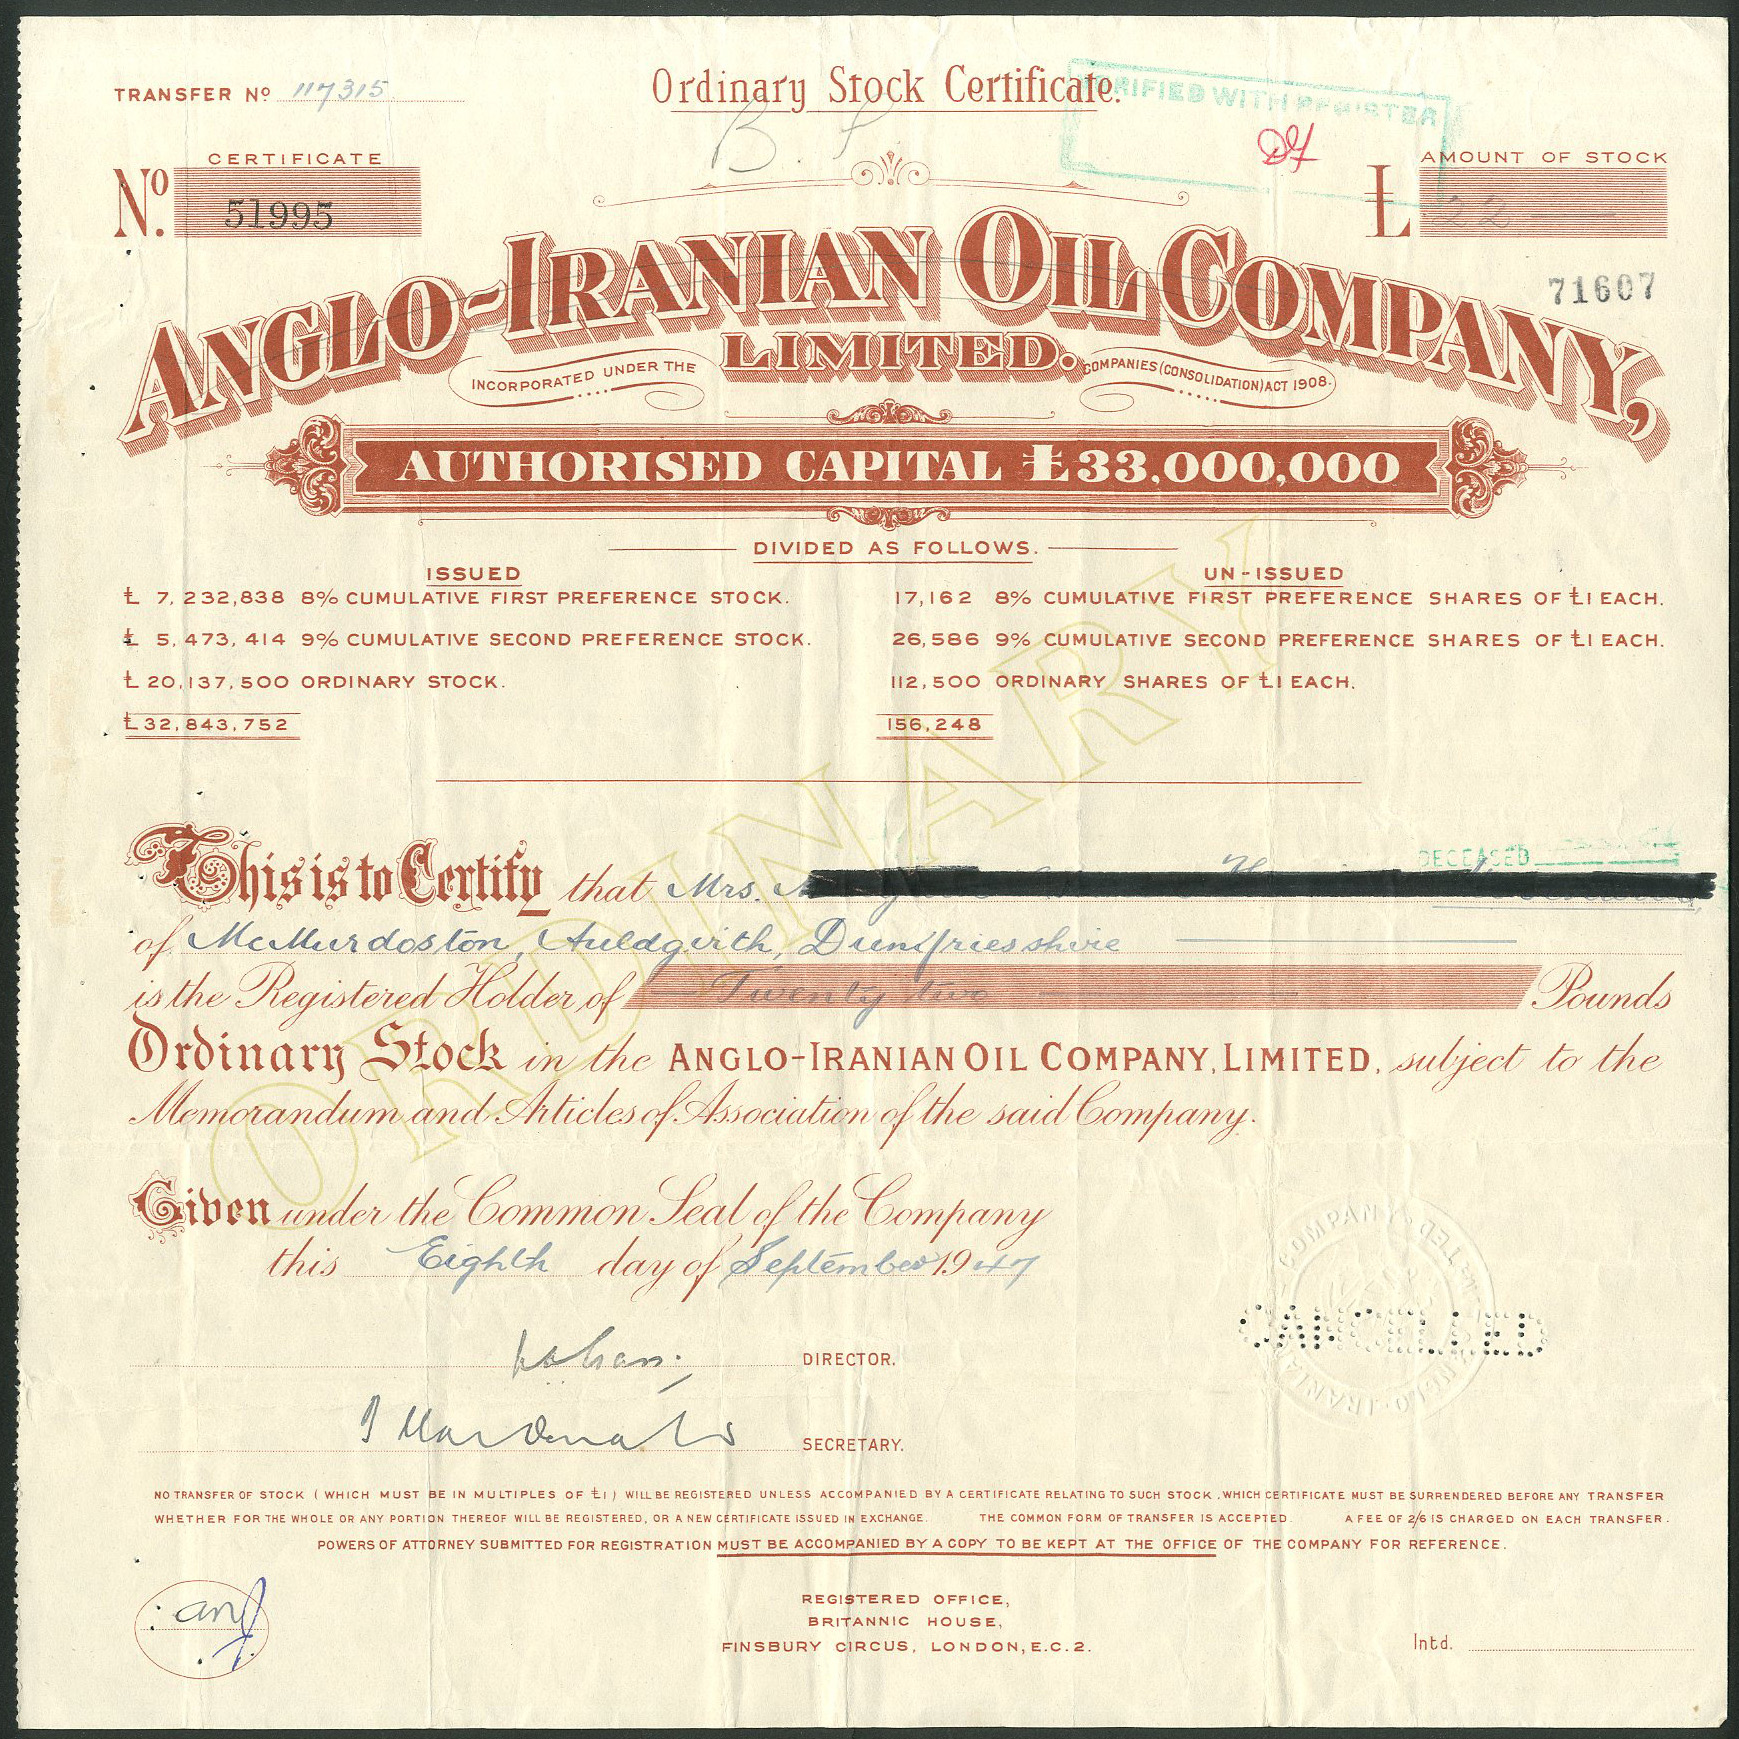 TRANSFER Nº 117315
Ordinary Stock Certificate.
VERIFIED WITH REGISTER
B. P
CERTIFICATE
Nº. 51995
AMOUNT OF STOCK
£ 22
71607
ANGLO-IRANIAN OIL COMPANY,
LIMITED.
INCORPORATED UNDER THE COMPANIES (CONSOLIDATION) ACT 1908.
AUTHORISED CAPITAL £33,000,000
DIVIDED AS FOLLOWS.
ISSUED
£ 7,232,838 8% CUMULATIVE FIRST PREFERENCE STOCK.
£ 5,473,414 9% CUMULATIVE SECOND PREFERENCE STOCK.
£ 20,137,500 ORDINARY STOCK.
£32,843,752
UN-ISSUED
17,162 8% CUMULATIVE FIRST PREFERENCE SHARES OF £1 EACH.
26,586 9% CUMULATIVE SECOND PREFERENCE SHARES OF £1 EACH.
112,500 ORDINARY SHARES OF £1 EACH.
156,248
ORDINARY
DECEASED
This is to Certify that Mrs.
of McMurdoston, Auldgirth, Dumfriesshire
is the Registered Holder of Twenty two Pounds
Ordinary Stock in the ANGLO-IRANIAN OIL COMPANY, LIMITED, subject to the
Memorandum and Articles of Association of the said Company.
Given under the Common Seal of the Company
this Eighth day of September 1947
CANCELLED
DIRECTOR.
SECRETARY.
NO TRANSFER OF STOCK (WHICH MUST BE IN MULTIPLES OF £1) WILL BE REGISTERED UNLESS ACCOMPANIED BY A CERTIFICATE RELATING TO SUCH STOCK, WHICH CERTIFICATE MUST BE SURRENDERED BEFORE ANY TRANSFER
WHETHER FOR THE WHOLE OR ANY PORTION THEREOF WILL BE REGISTERED, OR A NEW CERTIFICATE ISSUED IN EXCHANGE. THE COMMON FORM OF TRANSFER IS ACCEPTED. A FEE OF 2/6 IS CHARGED ON EACH TRANSFER.
POWERS OF ATTORNEY SUBMITTED FOR REGISTRATION MUST BE ACCOMPANIED BY A COPY TO BE KEPT AT THE OFFICE OF THE COMPANY FOR REFERENCE.
REGISTERED OFFICE,
BRITANNIC HOUSE,
FINSBURY CIRCUS, LONDON, E.C.2.
Intd.